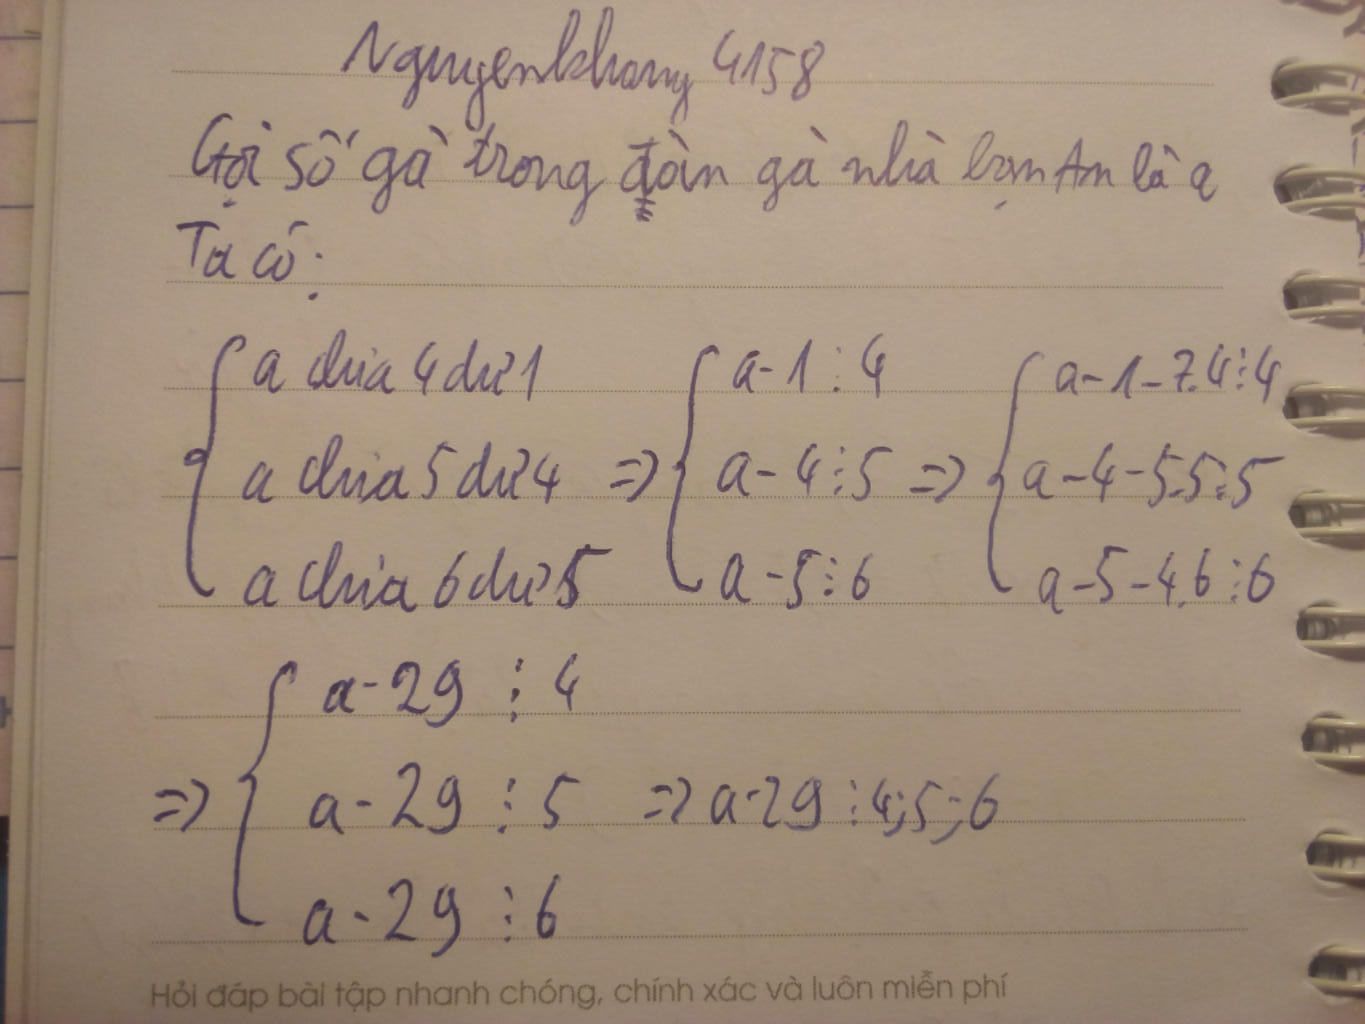 Nguyenkhang 4158
Gọi số gà trong đoàn gà nhà bạn An là a
Ta có:
a chia 4 dư 1
a chia 5 dư 4
a chia 6 dư 5
=>
a-1⋮4
a-4⋮5
a-5⋮6
=>
a-1-7.4⋮4
a-4-5.5⋮5
a-5-4.6⋮6
=>
a-29⋮4
a-29⋮5
a-29⋮6
=> a-29⋮4;5;6
Hỏi đáp bài tập nhanh chóng, chính xác và luôn miễn phí